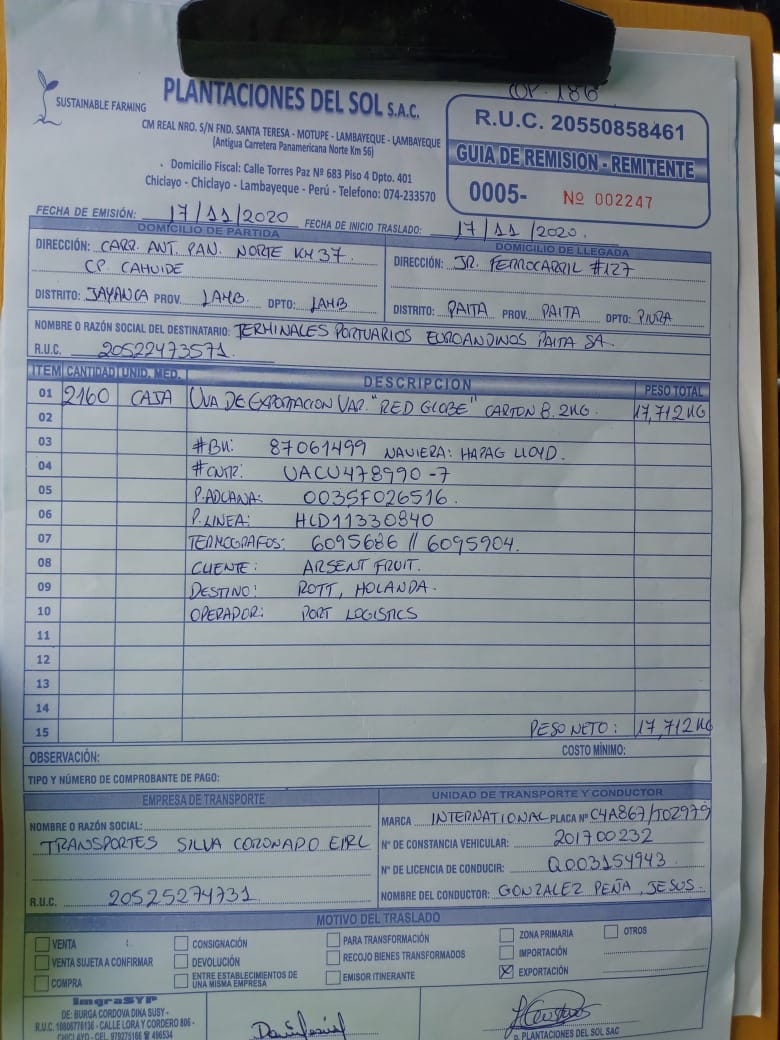 OP. 186
SUSTAINABLE FARMING
PLANTACIONES DEL SOL S.A.C.
CM REAL NRO. S/N FND. SANTA TERESA - MOTUPE - LAMBAYEQUE - LAMBAYEQUE
(Antigua Carretera Panamericana Norte Km 56)
Domicilio Fiscal: Calle Torres Paz Nº 683 Piso 4 Dpto. 401
Chiclayo - Chiclayo - Lambayeque - Perú - Telefono: 074-233570
R.U.C. 20550858461
GUIA DE REMISION - REMITENTE
0005- Nº 002247
FECHA DE EMISIÓN: 17/11/2020 FECHA DE INICIO TRASLADO: 17/11/2020.
DOMICILIO DE PARTIDA
DIRECCIÓN: CARR. ANT. PAN. NORTE KM 37.
CP. CAHUIDE
DISTRITO: JAYANCA PROV. LAMB. DPTO: LAMB
DOMICILIO DE LLEGADA
DIRECCIÓN: JR. FERROCARRIL #127
DISTRITO: PAITA PROV. PAITA DPTO: PIURA
NOMBRE O RAZÓN SOCIAL DEL DESTINATARIO: TERMINALES PORTUARIOS EUROANDINOS PAITA SA.
R.U.C. 20522473571.
ITEM CANTIDAD UNID. MED. DESCRIPCION PESO TOTAL
01 2160 CAJA UVA DE EXPORTACION VAR. "RED GLOBE" CARTON 8.2KG. 17,712KG
02
03 #BK: 87061499 NAVIERA: HAPAG LLOYD.
04 #CNTR: UACU478990-7
05 P.ADUANA: 0035F026516.
06 P.LINEA: HLD11330840
07 TERMOGRAFOS: 6095686 // 6095904.
08 CLIENTE: ARSENT FRUIT.
09 DESTINO: ROTT, HOLANDA.
10 OPERADOR: PORT LOGISTICS
11
12
13
14
15 PESO NETO: 17,712KG
OBSERVACIÓN: COSTO MÍNIMO:
TIPO Y NÚMERO DE COMPROBANTE DE PAGO:
EMPRESA DE TRANSPORTE
NOMBRE O RAZÓN SOCIAL:
TRANSPORTES SILVA CORONADO EIRL
R.U.C. 20525274731.
UNIDAD DE TRANSPORTE Y CONDUCTOR
MARCA INTERNATIONAL PLACA Nº C4A867/T0Z979
Nº DE CONSTANCIA VEHICULAR: 201700232
Nº DE LICENCIA DE CONDUCIR: Q003154943.
NOMBRE DEL CONDUCTOR: GONZALEZ PEÑA, JESUS.
MOTIVO DEL TRASLADO
VENTA CONSIGNACIÓN PARA TRANSFORMACIÓN ZONA PRIMARIA OTROS
VENTA SUJETA A CONFIRMAR DEVOLUCIÓN RECOJO BIENES TRANSFORMADOS IMPORTACIÓN
COMPRA ENTRE ESTABLECIMIENTOS DE UNA MISMA EMPRESA EMISOR ITINERANTE X EXPORTACIÓN
ImgraSYP
DE: BURGA CORDOVA DINA SUSY -
R.U.C. 10806776136 - CALLE LORA Y CORDERO 806 -
CHICLAYO - CEL. 979275166 ☎ 496534
P. PLANTACIONES DEL SOL SAC